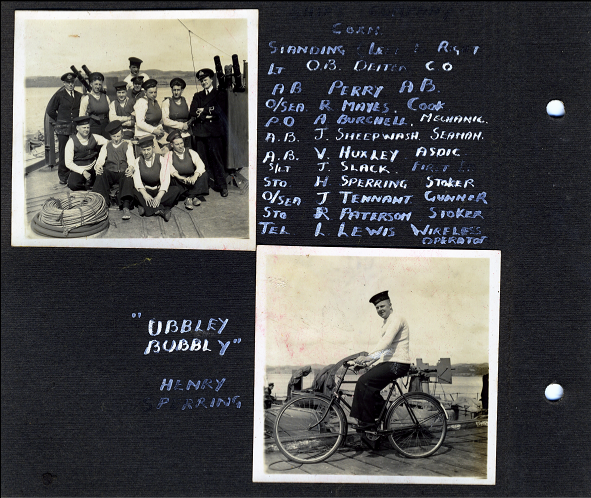 STANDING LEFT RIGT
LT O.B. DEITER CO
AB PERRY AB.
O/SEA R. MAYES. COOK
P.O A BURCHELL. MECHANIC.
A.B. J. SHEEPWASH. SEAMAN.
A.B. V. HUXLEY ASDIC
S/LT J. SLACK. FIRST
STO H SPERRING STOKER
O/SEA J TENNANT GUNNER
STO R PATERSON STOKER
TEL L LEWIS WIRELESS
OPERATOR
"UBBLEY
BUBBLY"
HENRY
SPERRING